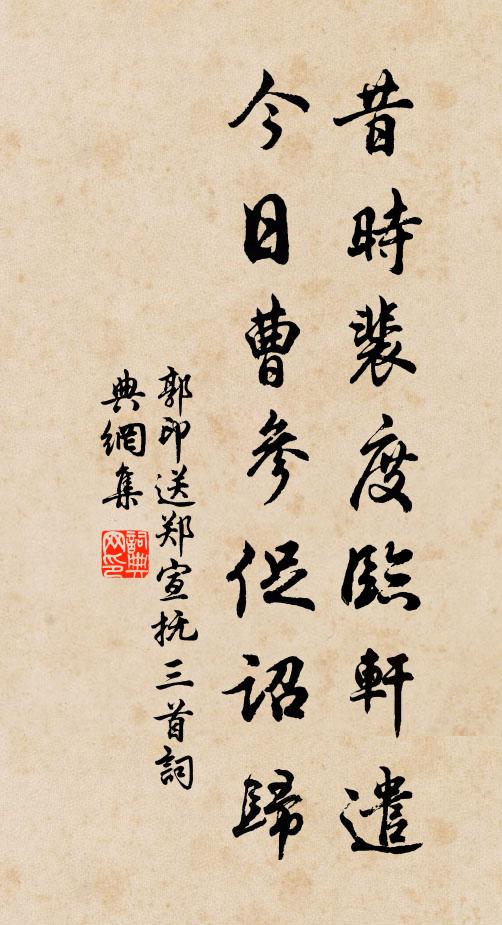 昔時裴度臨軒遣
今日曹參促詔歸
郭印送郑宣抚三首詞
典網集
詞典
网印